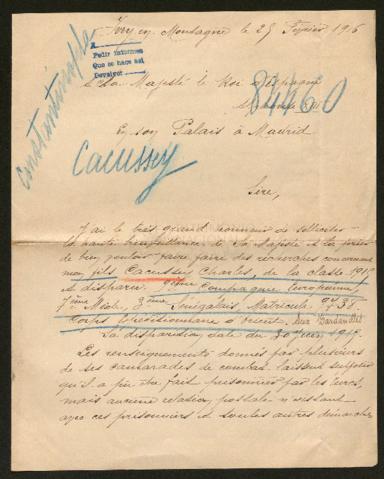 Ivry en Montagne le 25 Février 1916
A
Pedir informes
Que se hace así
Devolver
A Sa Majesté le Roi d'Espagne
Alphonse XIII
84460
Constantinople
En son Palais à Madrid
Cacussey
Sire,
J'ai le très grand honneur de solliciter
la haute bienveillance de Sa Majesté et la prier
de bien vouloir faire faire des recherches concernant
mon fils Cacussey Charles, de la classe 1915
et disparu. Compagnie
7ème Mixte, Sénégalais, Matricule
Corps Expéditionnaire d'Orient. Aux Dardanelles
La disparition date du
Les renseignements donnés par plusieurs
de ses camarades de combat laissent supposer
qu'il a pu être fait prisonnier par les turcs,
mais aucune relation postale n'existant
avec ces prisonniers et toutes autres démarches